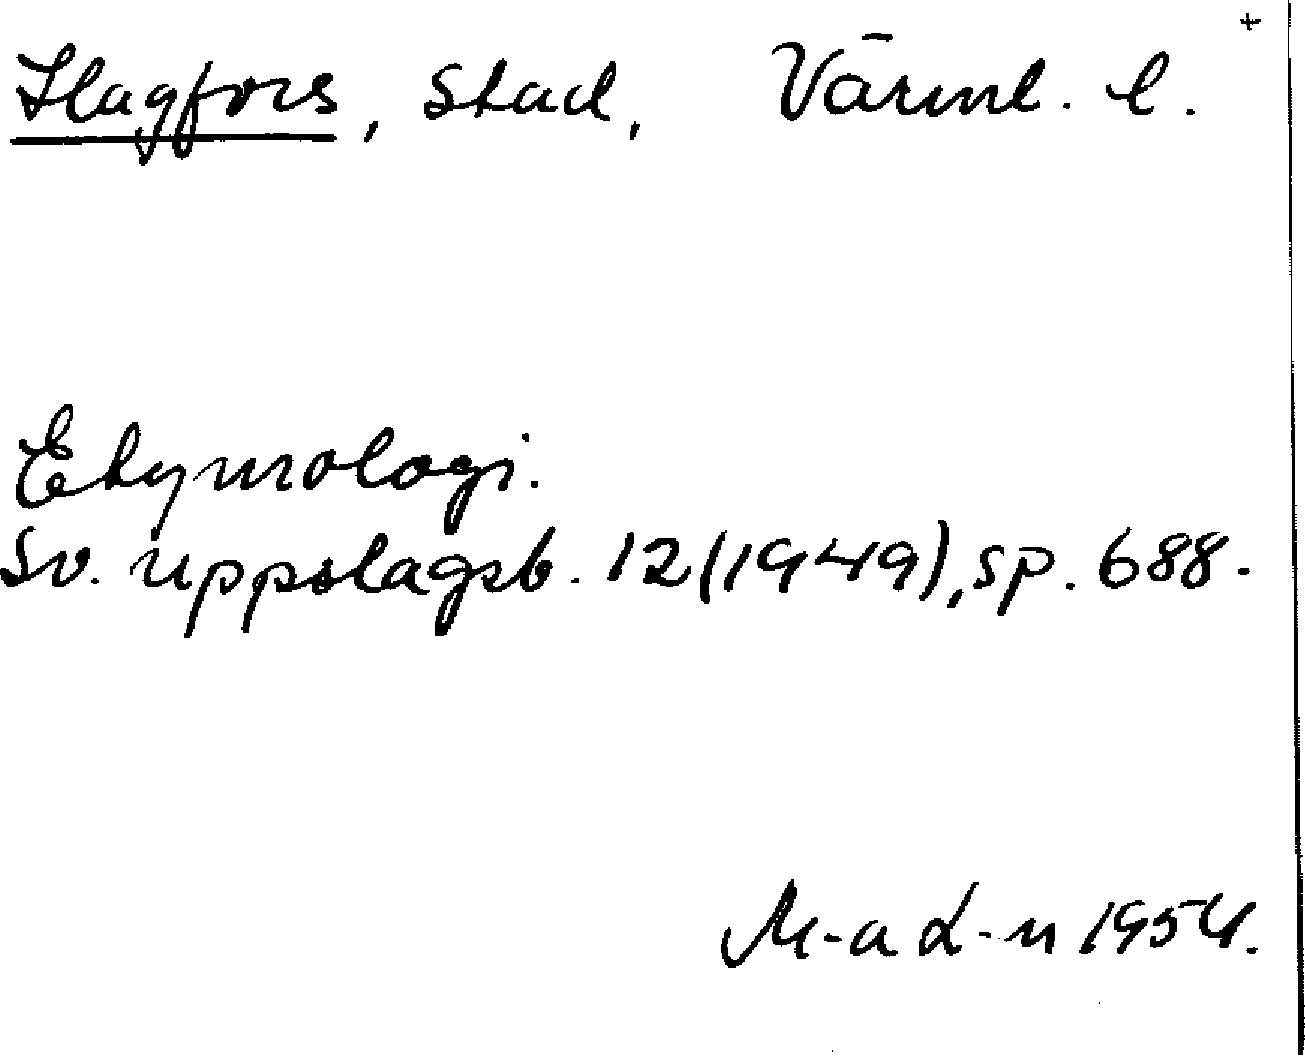 Hagfors, stad, Värml. l. +
Etymologi.
Sv. uppslagsb. 12(1949), sp. 688.
M-a L-n 1954.